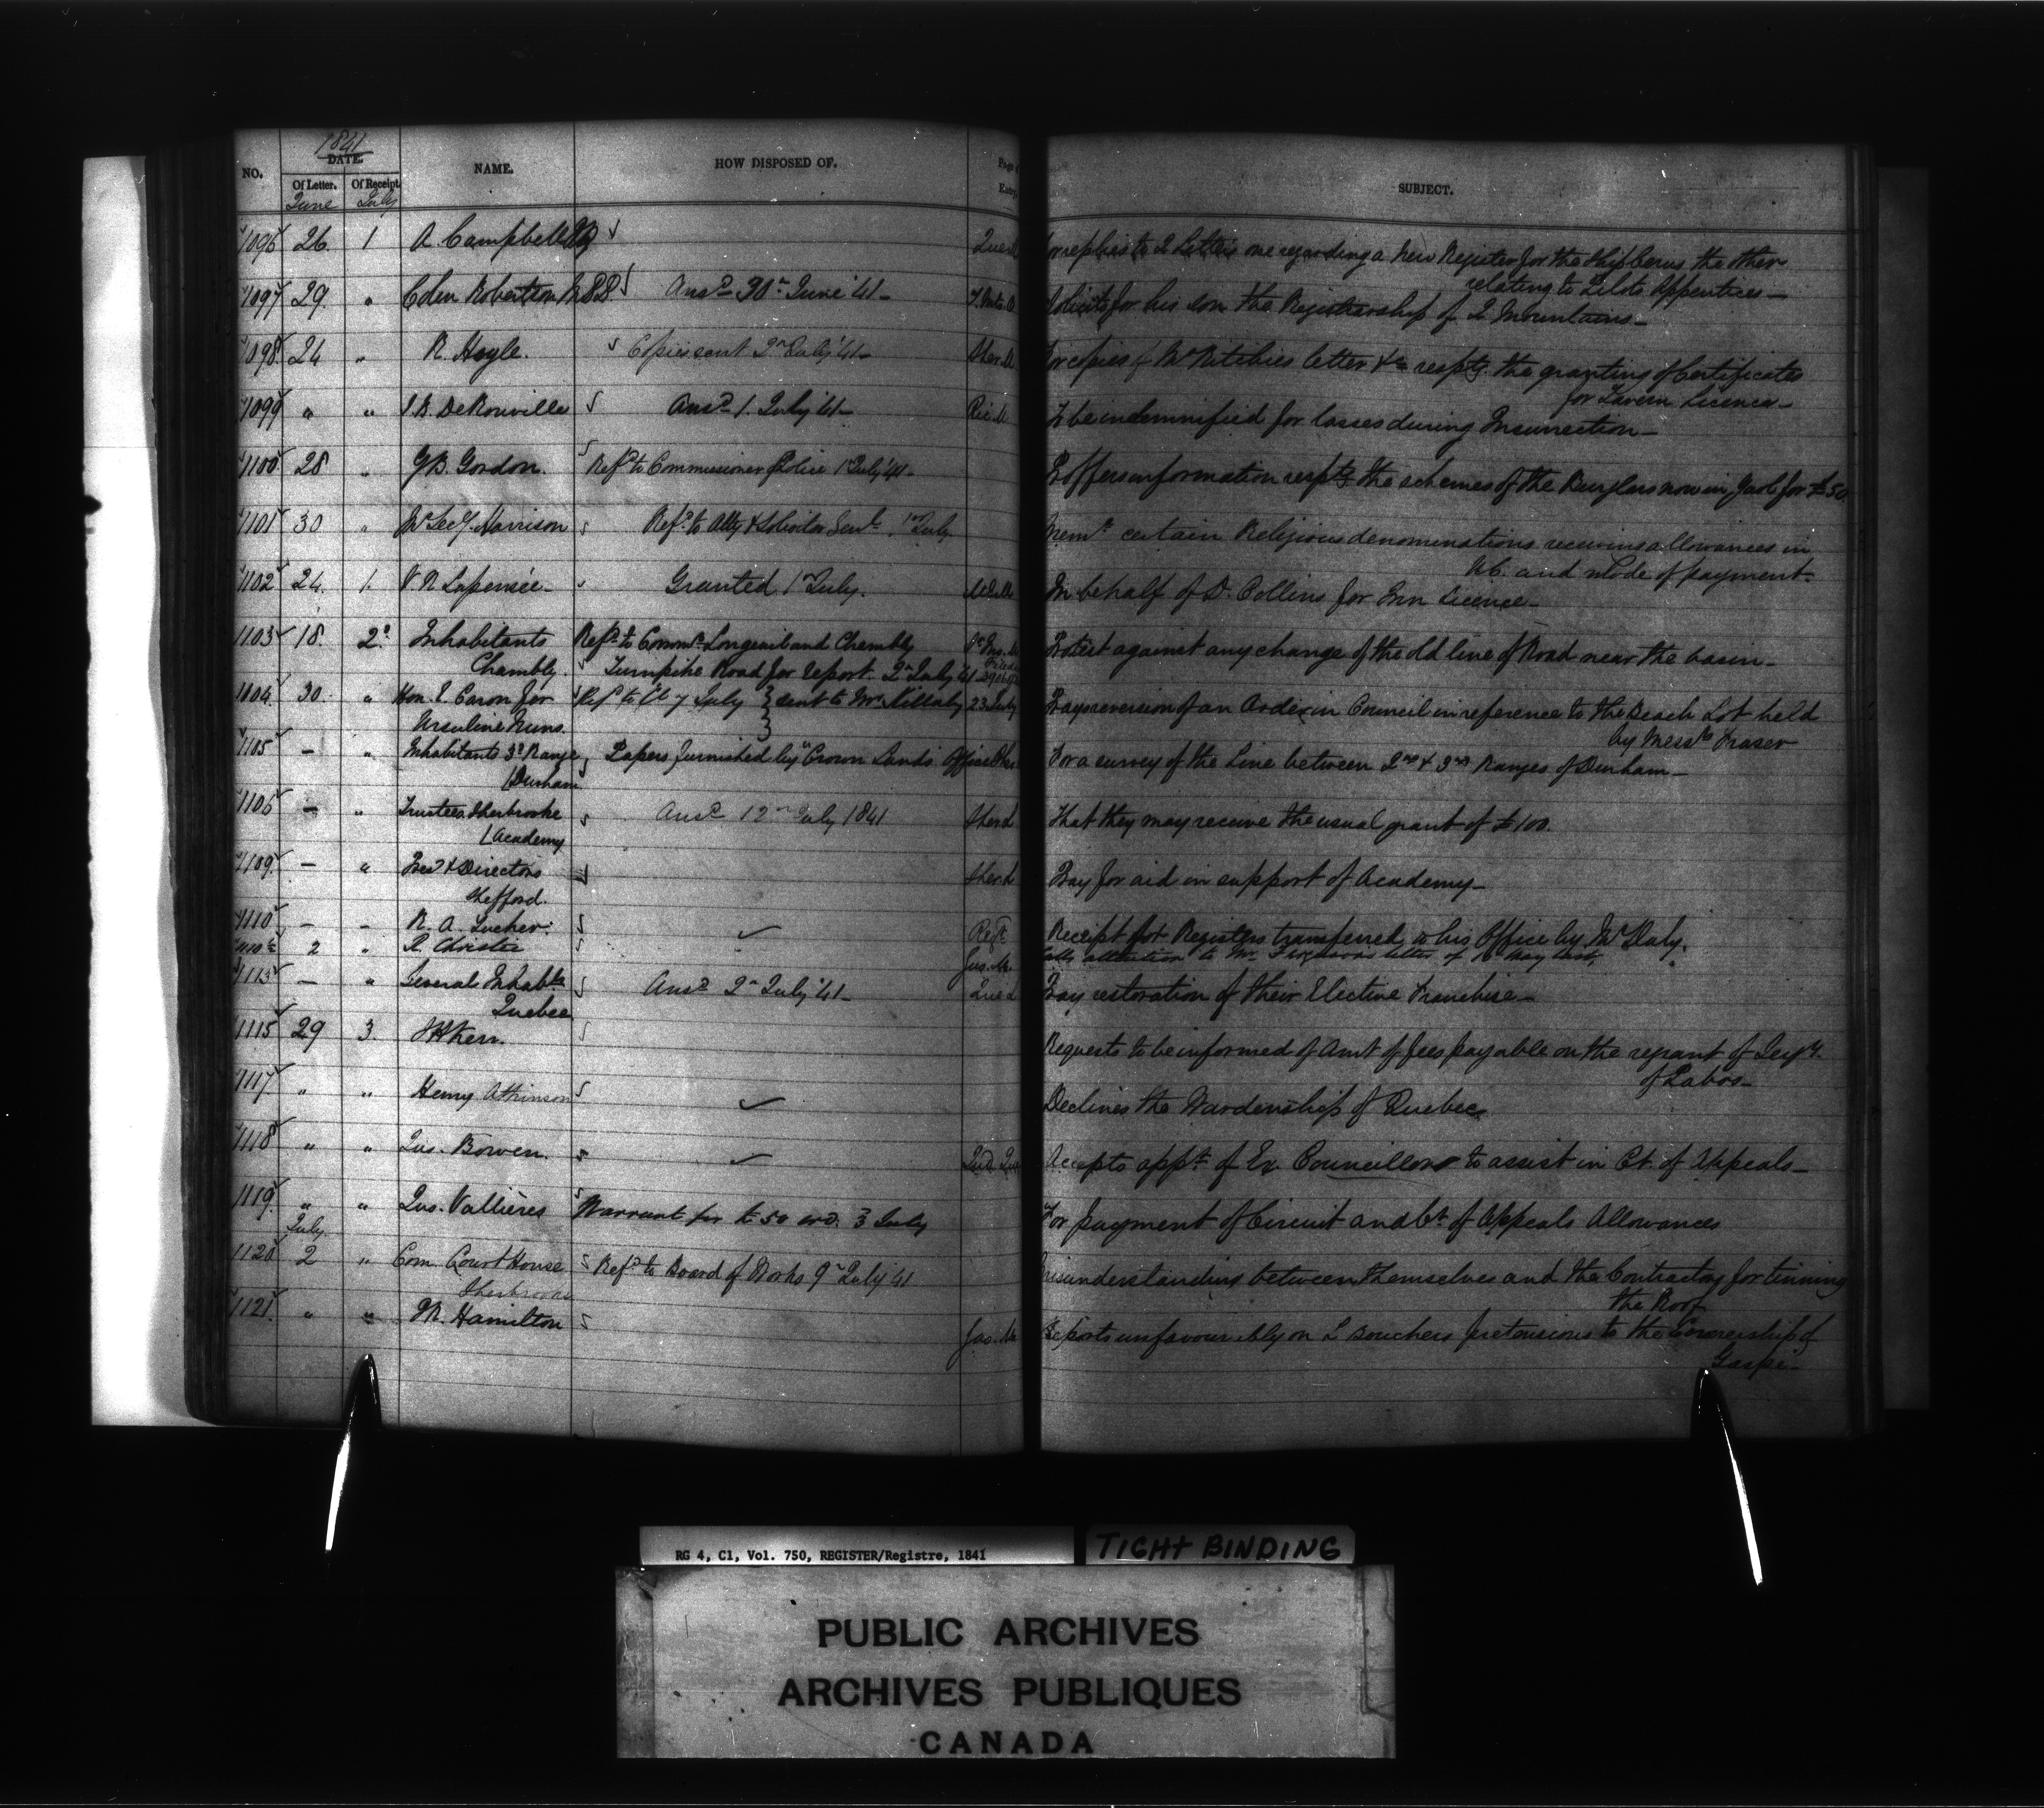 1841
NO. DATE. NAME. HOW DISPOSED OF. Page of Entry. SUBJECT.
Of Letter. Of Receipt
June July
1096 26 1 A. Campbell Que. For replies to 2 Letters one regarding a New Register for the Ship the other
relating to Pilots Apprentices—
1097 29 " Colin Robertson Ansd 30th June '41— Solicits for his son the Registrarship of 2 Mountains—
1098 24 " R. Hoyle. Copies sent 2nd July '41— Sher. For copies of Mr Ritchies letter &c respg. the granting of Certificates
for Tavern Licence—
1099 " " J. B. DeRouville Ansd 1. July '41— To be indemnified for losses during Insurrection—
1100 28 " G. B. Gordon. Refd to Commissioner Police 1 July '41— Offers information respg the schemes of the Burglars now in Gaol for £50
1101 30 " Harrison Refd to Atty & Solicitor Genl. 1st July. certain Religious denominations receiving allowances in
U.C. and mode of payment.
1102 24. 1. V. R. Lapensée— Granted 1st July. In behalf of D. Collins for Inn Licence—
1103 18. 2d Inhabitants Refd to Commrs Longueuil and Chambly Protest against any change of the old line of Road near the basin—
Chambly. Turnpike Road for report. 2nd July 41
1104 30. " Hon. E. Caron for Refd to 7 July } sent to Mr. Killaly 23 July Prays reversion of an Order in Council in reference to the Beach Lot held
Ursuline Nuns. by Messrs Fraser
1105 — " Inhabitants 3d Range Papers furnished by Crown Lands Office For a survey of the Line between 2nd & 3rd Ranges of Durham—
(Durham
1106 — " Trustees Sherbrooke Ansd 12th July 1841 Sher. That they may receive the usual grant of £100.
(Academy
1109. — " Pres & Directors Sher. Pray for aid in support of Academy—
Shefford.
1110 — — R. A. Tucker. Receipt for Registers transferred to his Office by Mr Daly.
1110½ 2 " R. Christie Gas. Calls attention to Mr. Fergusons letter of May last,
1113 — " Several Inhabts Ansd 2nd July '41— Que. Pray restoration of their Elective Franchise—
Quebec
1115 29 3. Kerr. Requests to be informed of Amt of fees payable on the regrant of Seigy.
of Pabos—
1117 " " Henry Atkinson Declines the Wardenship of Quebec
1118 " " Jus. Bowen. Accepts appt. of Ex. Councillor to assist in Ct. of Appeals—
1119 " " Jus. Vallières Warrant for £50 3 July For payment of Circuit and Ct. of Appeals Allowances
July
1120 2 " Com. Court House Refd to Board of Works 9th July 41 Misunderstanding between themselves and the Contractor for tinning
Sherbrooke the Roof
1121. " " Hamilton Gas. Reports unfavourably on L Bouchers pretensions to the Coronership of
Gaspé—
RG 4, C1, Vol. 750, REGISTER/Registre, 1841
TIGHT BINDING
PUBLIC ARCHIVES
ARCHIVES PUBLIQUES
CANADA